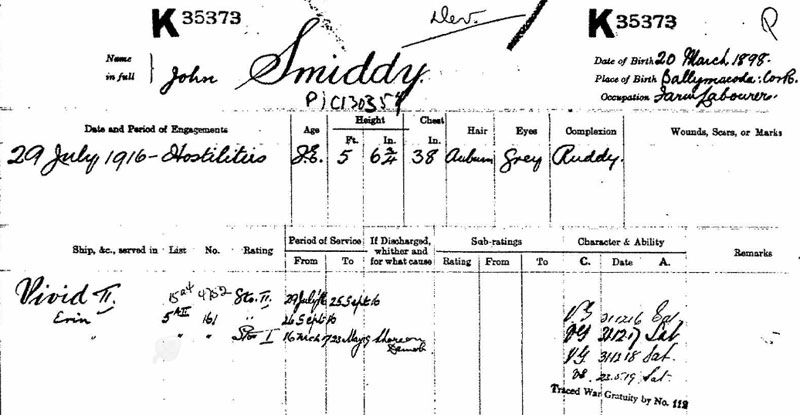 K 35373 Dev. K 35373 P
Name in full } John Smiddy.
P/C130354
Date of Birth 20 March, 1898.
Place of Birth Ballymacoda: Cork.
Occupation Farm Labourer.
Date and Period of Engagements Age Height Chest Hair Eyes Complexion Wounds, Scars, or Marks
Ft. In. In.
29 July 1916 - Hostilities 5 6 3/4 38 Auburn Grey Ruddy.
Ship, &c., served in List No. Rating Period of Service If Discharged, whither and for what cause Sub-ratings Character & Ability Remarks
From To Rating From To C. Date A.
Vivid II. 15a4 4752 Sto. II. 29 July 16 25 Sept 16
Erin 5AII 161 " 26 Sept 16 VG 31.12.16 Sat
" " " Sto I 16 Mch 17 23 May 19 Shore on Demob VG 31.12.17 Sat
VG 31.12.18 Sat.
VG 23.5.19 Sat.
Traced War Gratuity by No. 112